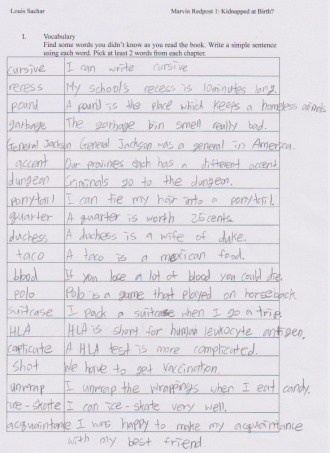 Louis Sachar Marvin Redpost 1: Kidnapped at Birth?
I. Vocabulary
Find some words you didn't know as you read the book. Write a simple sentence
using each word. Pick at least 2 words from each chapter.
cursive I can write cursive
recess My school's recess is 10minutes long.
pound A pound is the place which keeps a homeless
garbage The garbage bin smell really bad.
General Jackson General Jackson was a general in America.
accent Our provinces each has a different accent.
dungeon Criminals go to the dungeon.
ponytail I can tie my hair into a ponytail.
quarter A quarter is worth 25cents
duchess A duchess is a wife of duke.
taco A taco is a mexican food.
blood If you lose a lot of blood you could die.
polo Polo is a game that played on horseback
suitcase I pack a suitcase when I go a trip.
HLA HLA is short for human leukocyte antigen.
A HLA test is more complicated.
shot We have to get vaccination.
unwrap I unwrap the wrappings when I eat candy.
ice-skate I can ice-skate very well.
acquaintance I was happy to make my acquaintance
with my best friend.